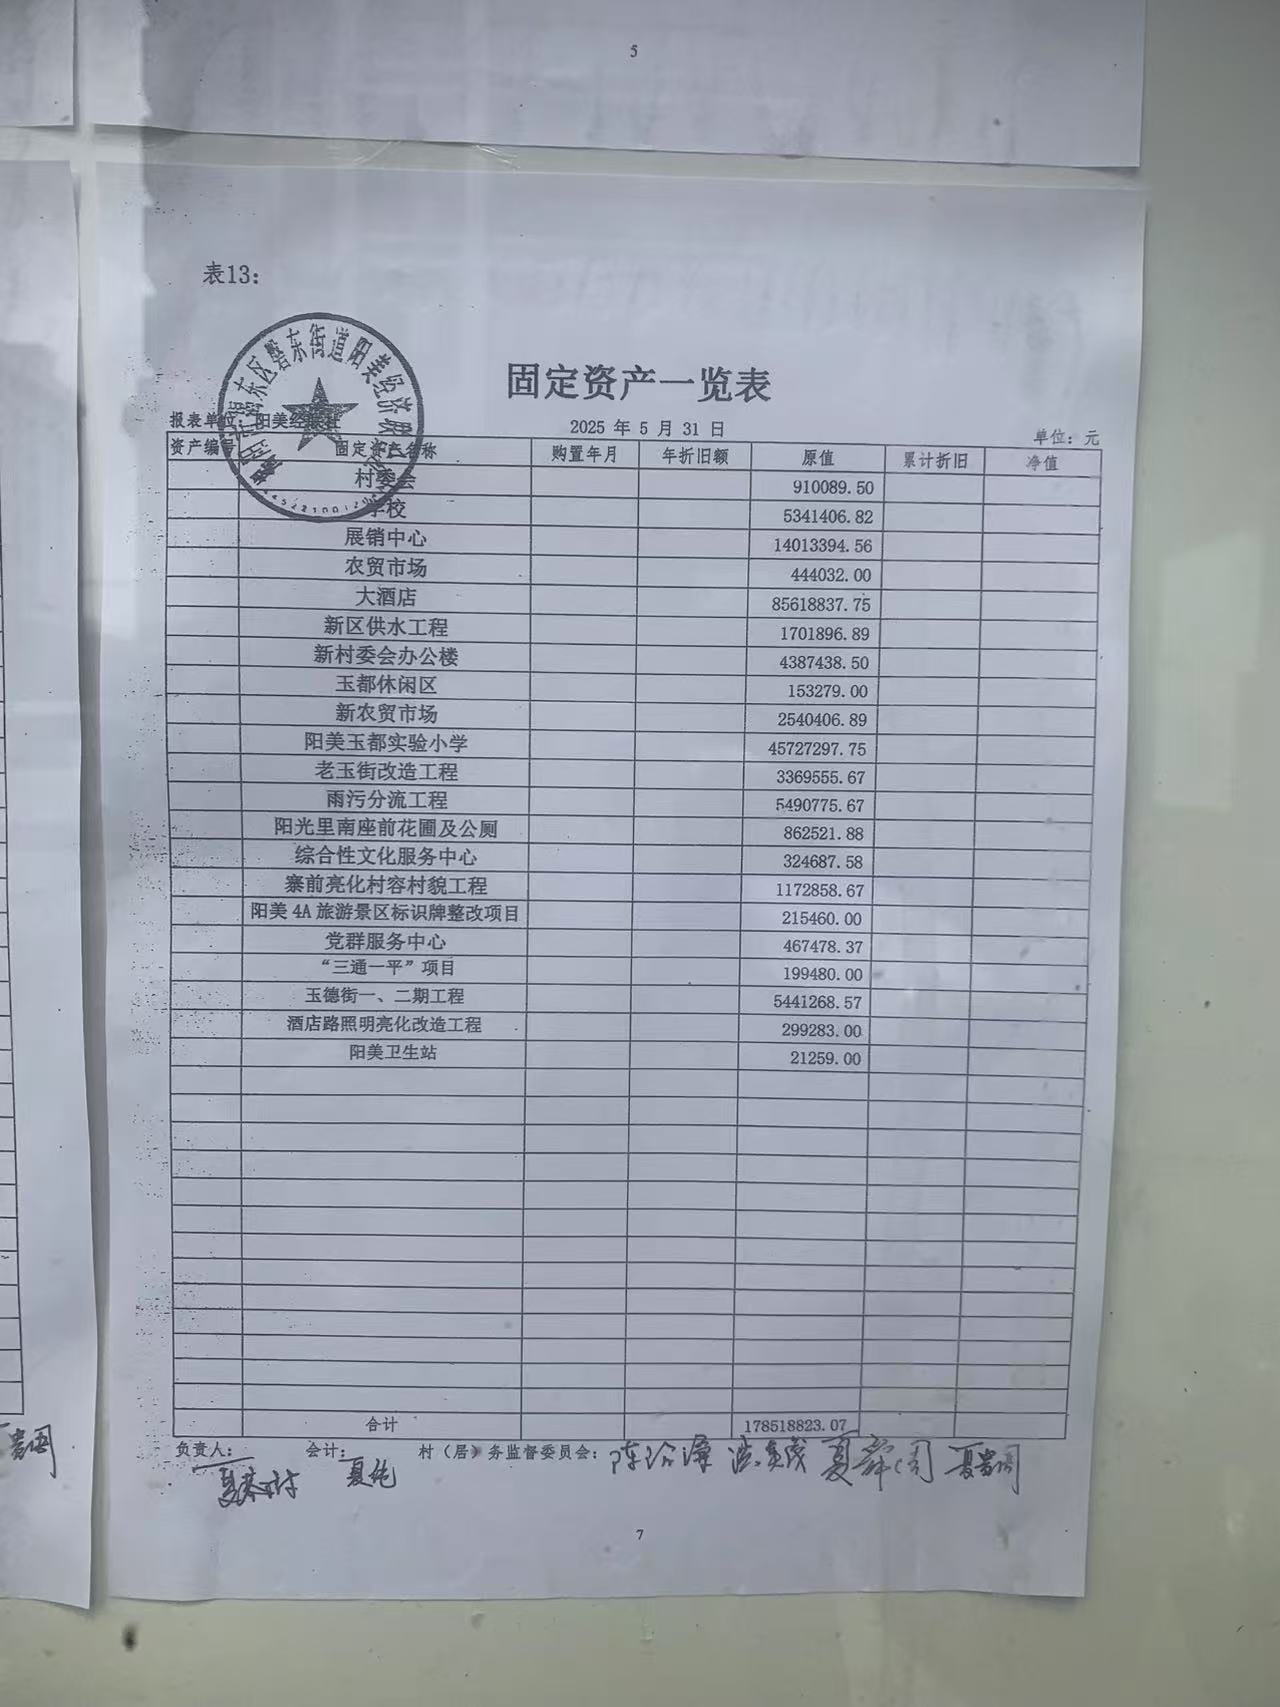 5
表13:
固定资产一览表
报表单位: 阳美经联社
2025 年 5 月 31 日
单位: 元
资产编号 固定资产名称 购置年月 年折旧额 原值 累计折旧 净值
村委会 910089.50
学校 5341406.82
展销中心 14013394.56
农贸市场 444032.00
大酒店 85618837.75
新区供水工程 1701896.89
新村委会办公楼 4387438.50
玉都休闲区 153279.00
新农贸市场 2540406.89
阳美玉都实验小学 45727297.75
老玉街改造工程 3369555.67
雨污分流工程 5490775.67
阳光里南座前花圃及公厕 862521.88
综合性文化服务中心 324687.58
寨前亮化村容村貌工程 1172858.67
阳美 4A 旅游景区标识牌整改项目 215460.00
党群服务中心 467478.37
“三通一平”项目 199480.00
玉德街一、二期工程 5441268.57
酒店路照明亮化改造工程 299283.00
阳美卫生站 21259.00
合计 178518823.07
负责人: 会计: 村（居）务监督委员会:
7
东区磐东街道阳美经济